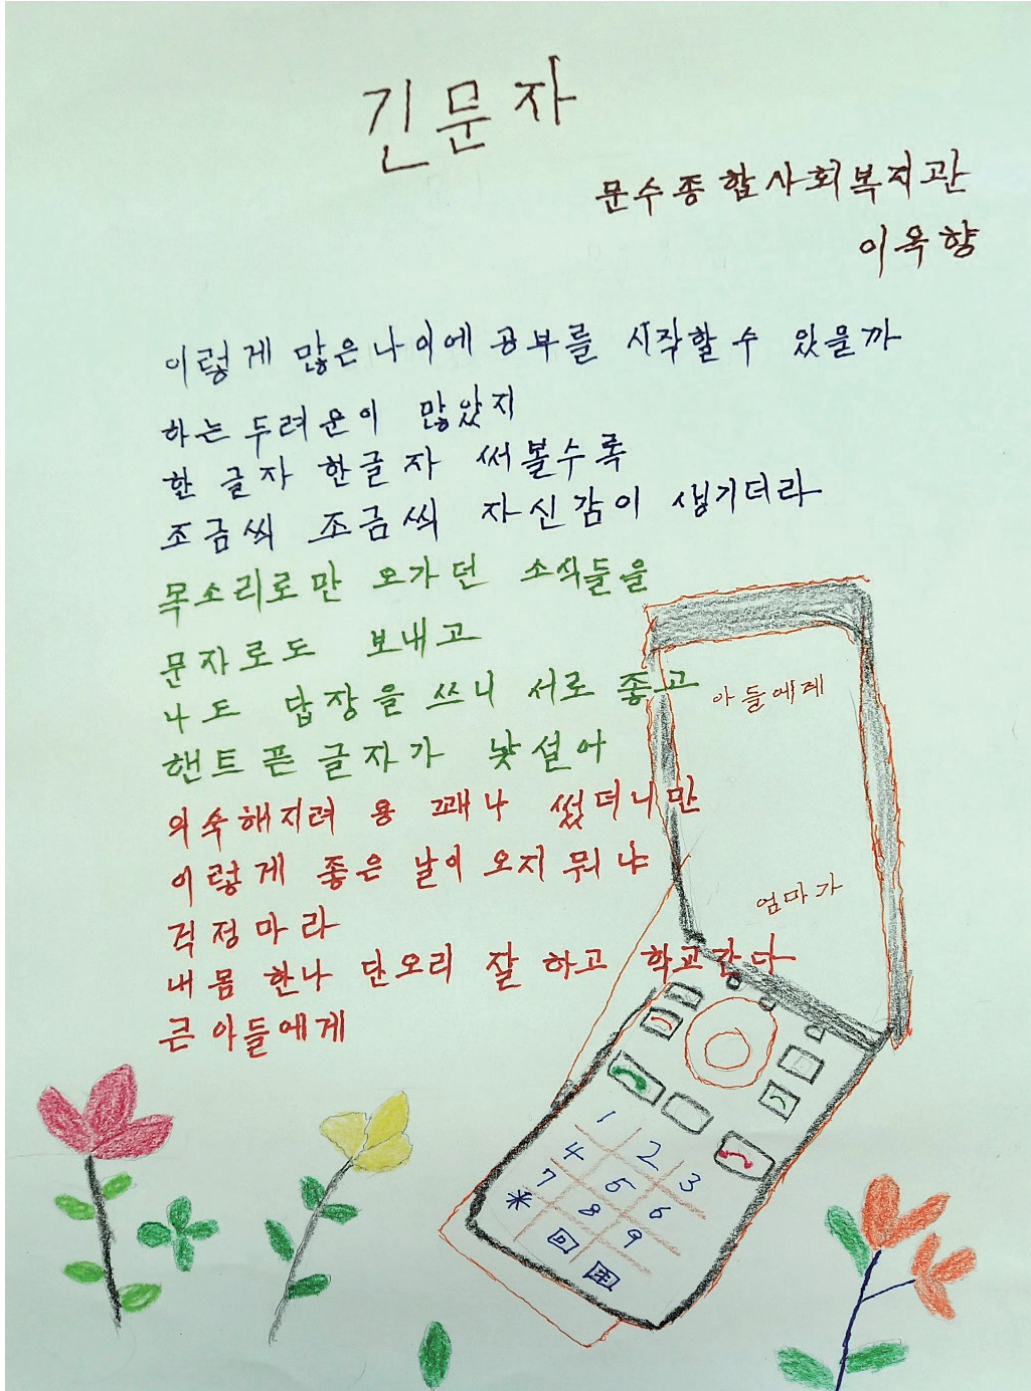 긴문자
문수종합사회복지관
이옥향
이렇게 많은나이에 공부를 시작할수 있을까
하는 두려운이 많았지
한 글자 한글자 써볼수록
조금씩 조금씩 자신감이 생기더라
목소리로만 오가던 소식들을
문자로도 보내고
나도 답장을 쓰니 서로 좋고
핸트픈 글자가 낯설어
의숙해지려 용 꽤나 썼더니만
이렇게 좋은 날이 오지뭐냐
걱정마라
내몸 한나 단오리 잘 하고 학교간다
큰아들에게
아들에게
엄마가
1 2 3
4 5 6
7 8 9
*